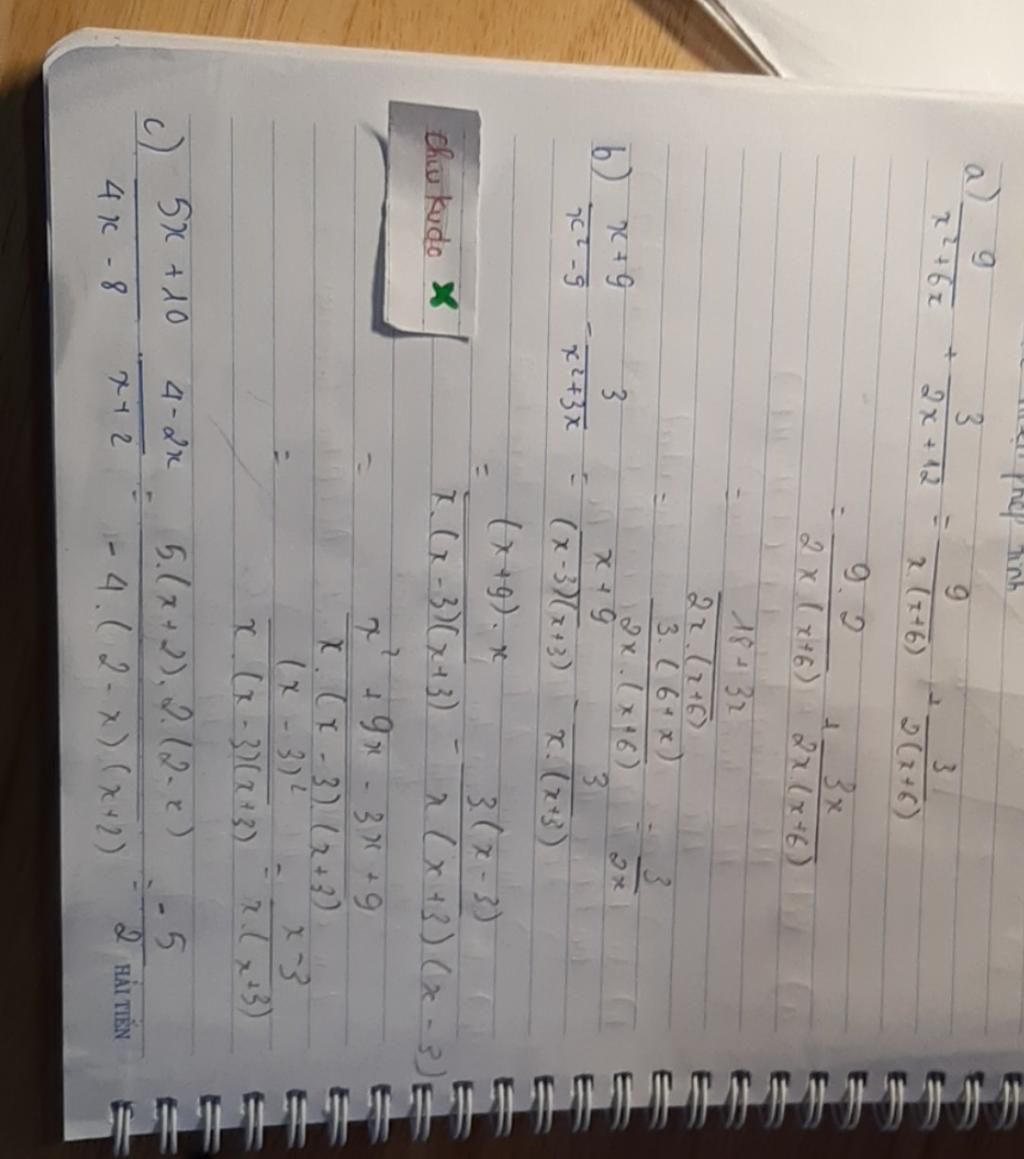 phép tính
a) 9/(x²+6x) + 3/(2x+12) = 9/(x.(x+6)) + 3/(2(x+6))
= 9.2/(2x(x+6)) + 3x/(2x(x+6))
= (18+3x)/(2x.(x+6))
= 3.(6+x)/(2x.(x+6)) = 3/2x
b) (x+9)/(x²-9) - 3/(x²+3x) = (x+9)/((x-3)(x+3)) - 3/(x.(x+3))
= (x+9).x/(x.(x-3)(x+3)) - 3(x-3)/(x(x+3)(x-3))
= (x²+9x-3x+9)/(x.(x-3)(x+3))
= (x-3)²/(x.(x-3)(x+3)) = (x-3)/(x.(x+3))
chiu kudo x
c) (5x+10)/(4x-8) (4-2x)/(x+2) = 5.(x+2).2.(2-x)/(-4.(2-x)(x+2)) = -5/2
HẢI TIẾN